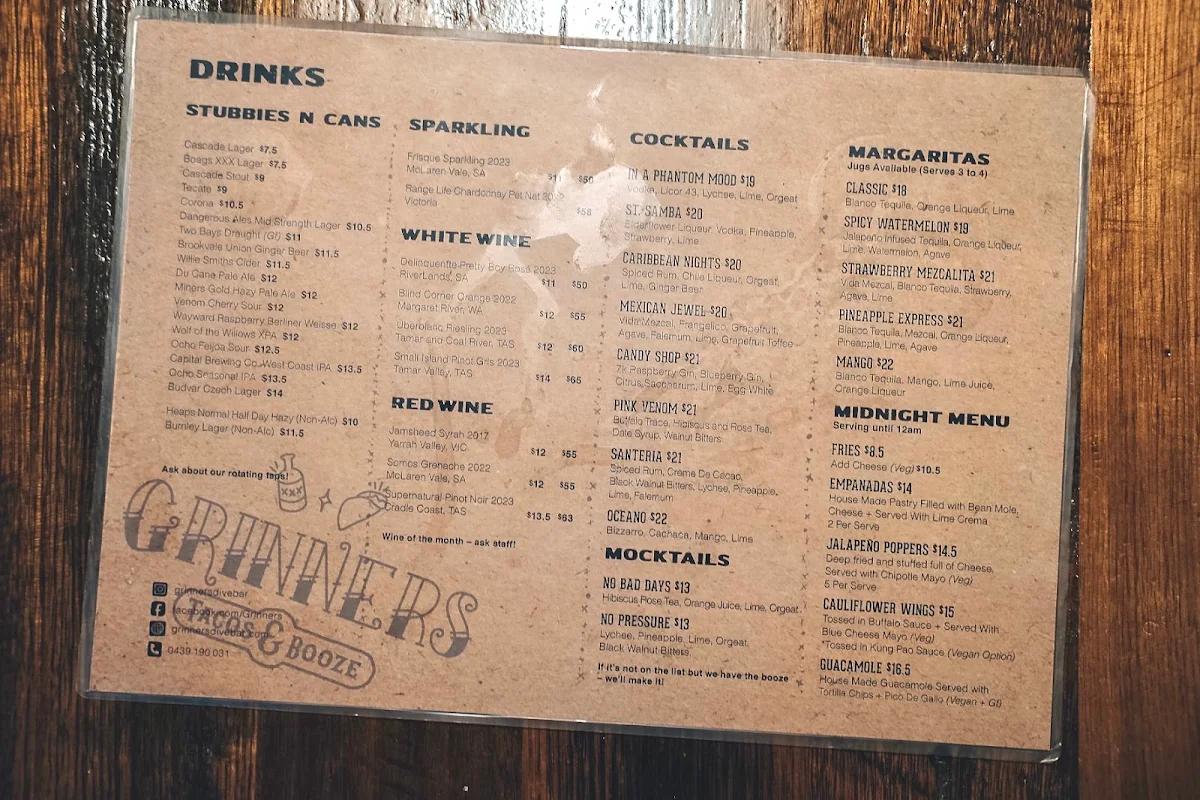 DRINKS
STUBBIES N CANS
Cascade Lager $7.5
Boags XXX Lager $7.5
Cascade Stout $9
Tecate $9
Corona $10.5
Dangerous Ales Mid Strength Lager $10.5
Two Bays Draught (Gf) $11
Brookvale Union Ginger Beer $11.5
Willie Smiths Cider $11.5
Du Cane Pale Ale $12
Miners Gold Hazy Pale Ale $12
Venom Cherry Sour $12
Wayward Raspberry Berliner Weisse $12
Wolf of the Willows XPA $12
Ocho Feijoa Sour $12.5
Capital Brewing Co West Coast IPA $13.5
Ocho Seasonal IPA $13.5
Budvar Czech Lager $14
Heaps Normal Half Day Hazy (Non-Alc) $10
Burnley Lager (Non-Alc) $11.5
Ask about our rotating taps!
XXX
GRINNERS
TACOS & BOOZE
grinnersdivebar
facebook.com/Grinners
grinnersdivebar.com
0439 190 031
SPARKLING
Frisque Sparkling 2023
McLaren Vale, SA
$50
Range Life Chardonnay Pet Nat
Victoria
$58
WHITE WINE
Delinquente Pretty Boy Rosé 2023
RiverLands, SA
$11 $50
Blind Corner Orange 2022
Margaret River, WA
$12 $55
Uberblanc Riesling 2023
Tamar and Coal River, TAS
$12 $60
Small Island Pinot Gris 2023
Tamar Valley, TAS
$14 $65
RED WINE
Jamsheed Syrah 2017
Yarrah Valley, VIC
$12 $55
Somos Grenache 2022
McLaren Vale, SA
$12 $55
Supernatural Pinot Noir 2023
Cradle Coast, TAS
$13.5 $63
Wine of the month – ask staff!
COCKTAILS
IN A PHANTOM MOOD $19
Vodka, Licor 43, Lychee, Lime, Orgeat
ST. SAMBA $20
Elderflower Liqueur, Vodka, Pineapple,
Strawberry, Lime
CARIBBEAN NIGHTS $20
Spiced Rum, Chile Liqueur, Orgeat,
Lime, Ginger Beer
MEXICAN JEWEL $20
Vida Mezcal, Frangelico, Grapefruit,
Agave, Falernum, Lime, Grapefruit Toffee
CANDY SHOP $21
7k Raspberry Gin, Blueberry Gin,
Citrus Saccharum, Lime, Egg White
PINK VENOM $21
Buffalo Trace, Hibiscus and Rose Tea,
Date Syrup, Walnut Bitters
SANTERIA $21
Spiced Rum, Creme De Cacao,
Black Walnut Bitters, Lychee, Pineapple,
Lime, Falernum
OCEANO $22
Bizzarro, Cachaca, Mango, Lime
MOCKTAILS
NO BAD DAYS $13
Hibiscus Rose Tea, Orange Juice, Lime, Orgeat
NO PRESSURE $13
Lychee, Pineapple, Lime, Orgeat,
Black Walnut Bitters
If it's not on the list but we have the booze
– we'll make it!
MARGARITAS
Jugs Available (Serves 3 to 4)
CLASSIC $18
Blanco Tequila, Orange Liqueur, Lime
SPICY WATERMELON $19
Jalapeño Infused Tequila, Orange Liqueur,
Lime, Watermelon, Agave
STRAWBERRY MEZCALITA $21
Vida Mezcal, Blanco Tequila, Strawberry,
Agave, Lime
PINEAPPLE EXPRESS $21
Blanco Tequila, Mezcal, Orange Liqueur,
Pineapple, Lime, Agave
MANGO $22
Blanco Tequila, Mango, Lime Juice,
Orange Liqueur
MIDNIGHT MENU
Serving until 12am
FRIES $8.5
Add Cheese (Veg) $10.5
EMPANADAS $14
House Made Pastry Filled with Bean Mole,
Cheese + Served With Lime Crema
2 Per Serve
JALAPEÑO POPPERS $14.5
Deep fried and stuffed full of Cheese,
Served with Chipotle Mayo (Veg)
5 Per Serve
CAULIFLOWER WINGS $15
Tossed in Buffalo Sauce + Served With
Blue Cheese Mayo (Veg)
*Tossed in Kung Pao Sauce (Vegan Option)
GUACAMOLE $16.5
House Made Guacamole Served with
Tortilla Chips + Pico De Gallo (Vegan + Gf)